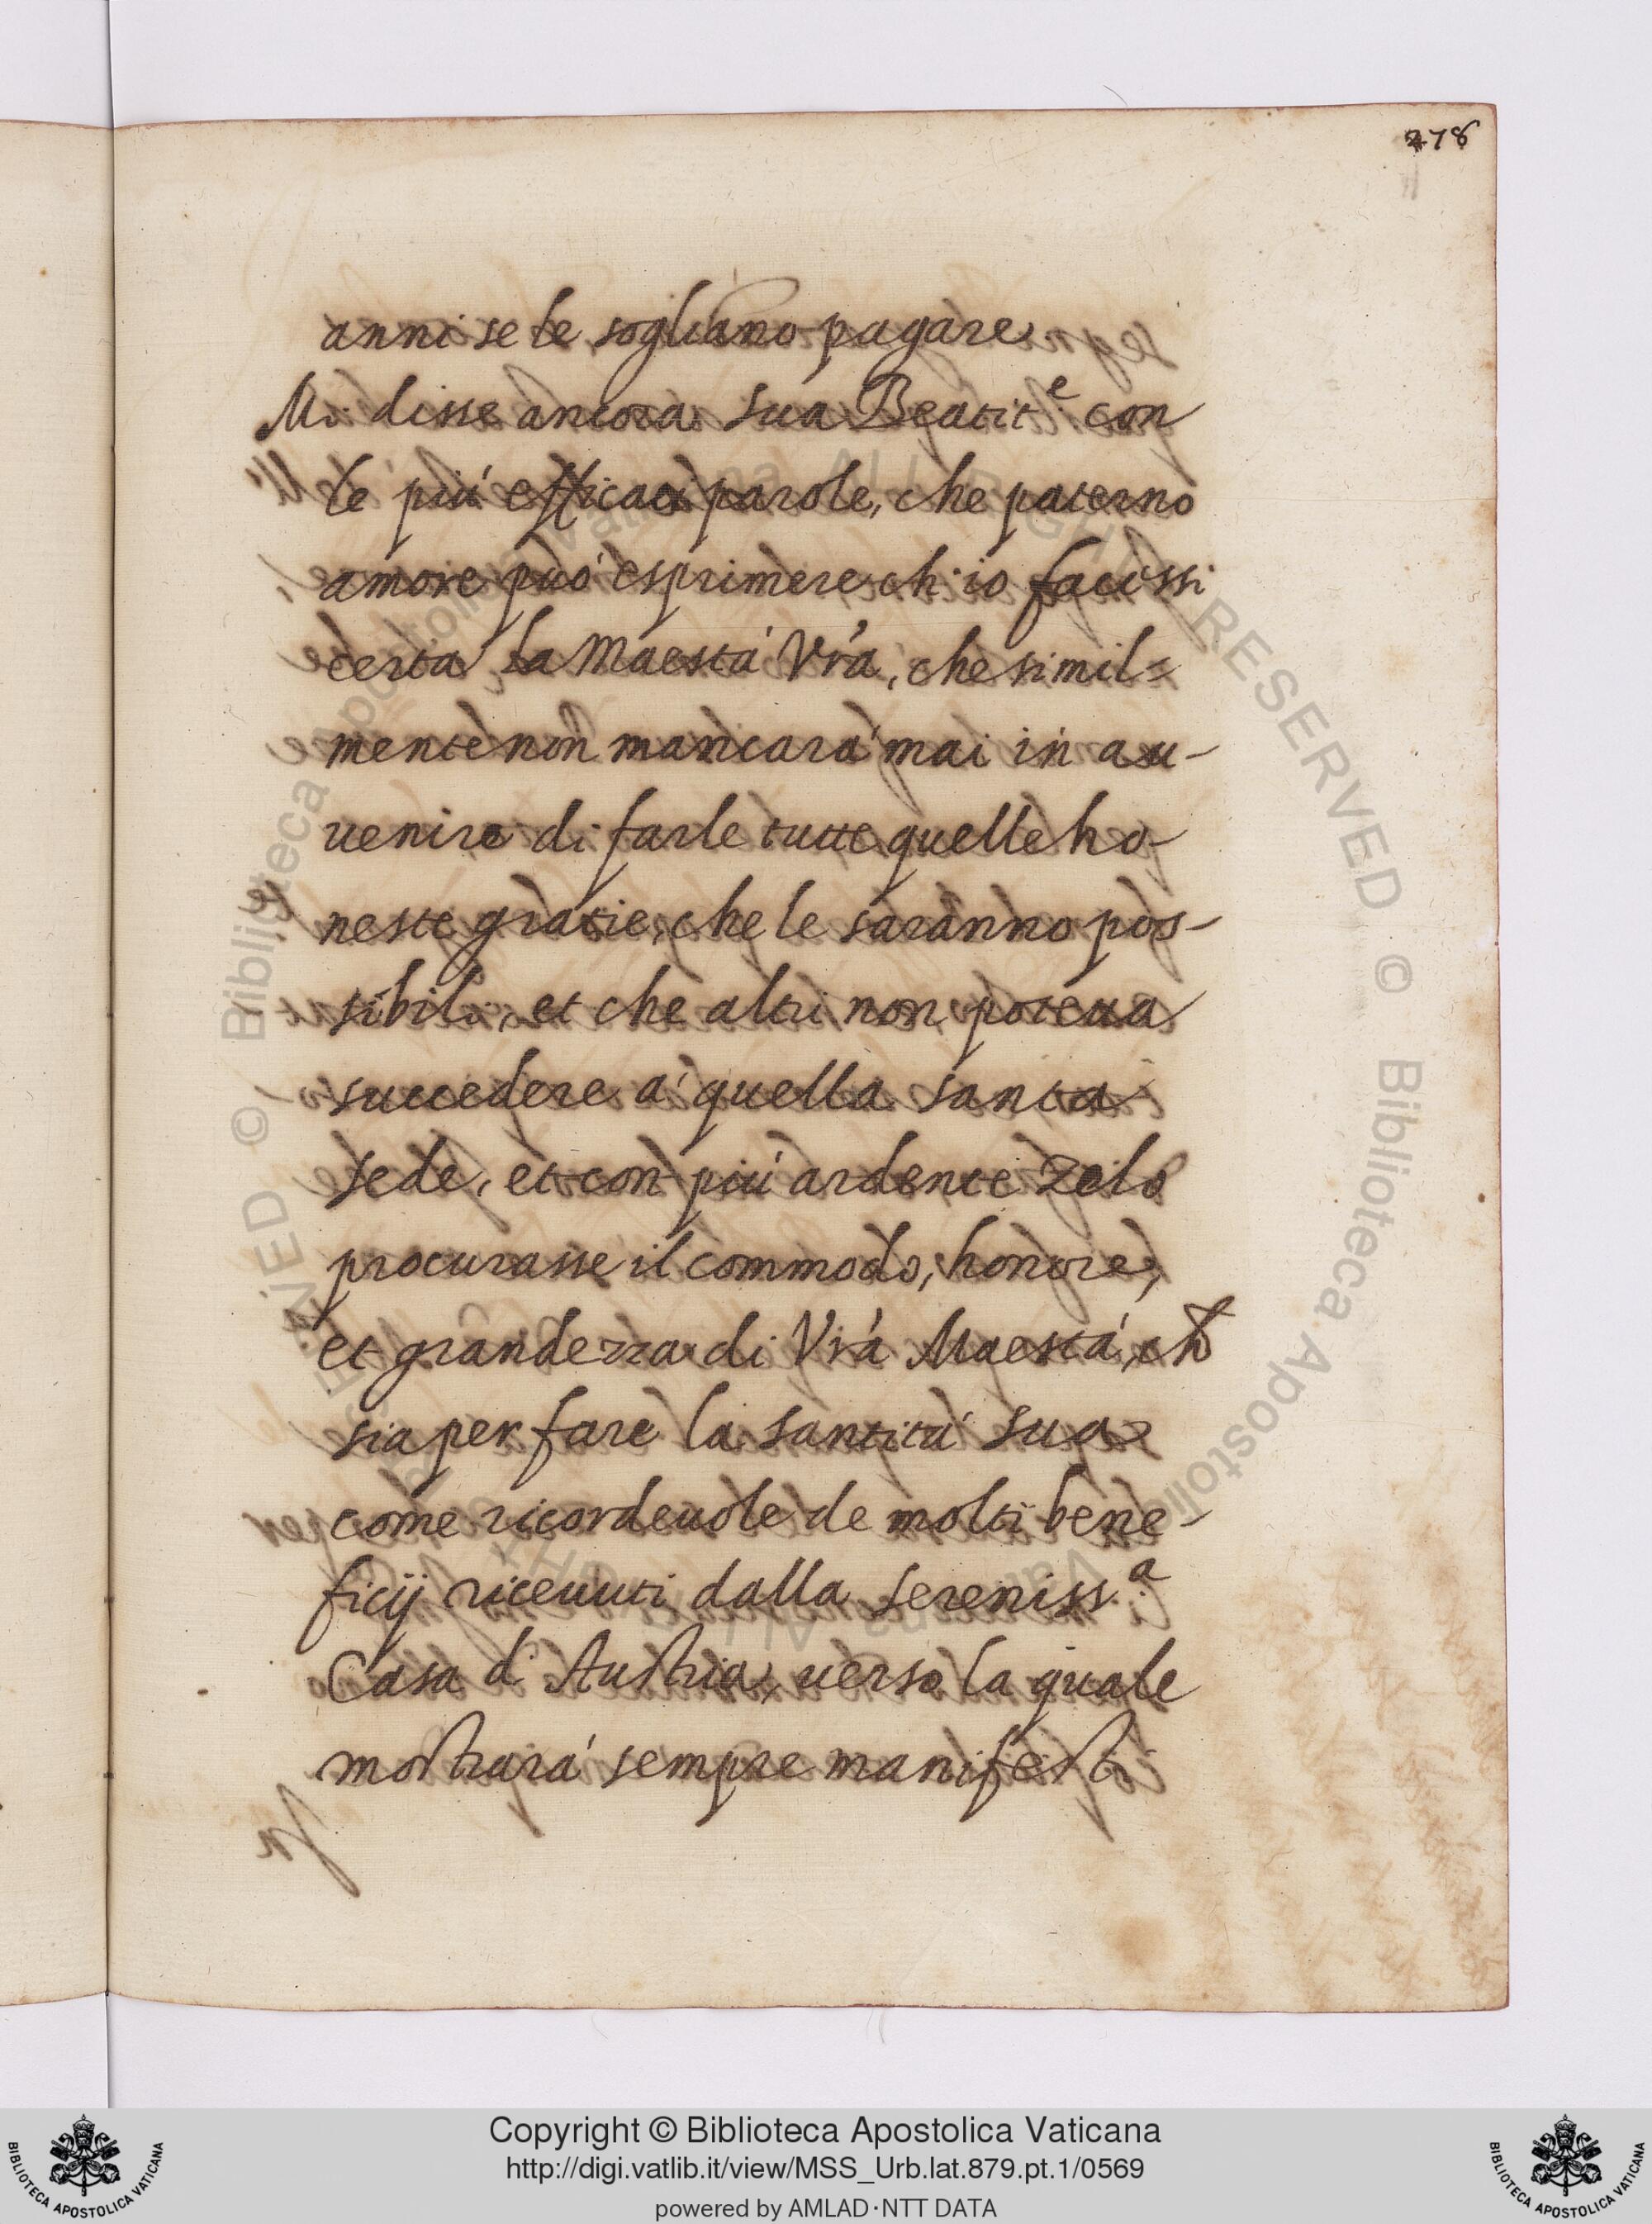 278
anni se le sogliano pagare
Mi disse ancora sua Beatit.e con
le piú efficaci parole, che paterno
amore può esprimere ch'io facessi
certa la Maestá Vrá, che simil=
mente non mancará mai in au-
uenire di farle tutte quelle ho-
neste gratie, che le saranno pos-
sibili, et che altri non poteua
succedere á quella santa
sede, et con piú ardente zelo
procurasse il commodo, honore,
et grandezza di Vrá Maestá, ch
sia per fare la santitá sua
come ricordeuole de molti bene-
ficij riceuuti dalla sereniss.a
Casa d'Austria, uerso la quale
mostrará sempre manifesti
Copyright © Biblioteca Apostolica Vaticana
http://digi.vatlib.it/view/MSS_Urb.lat.879.pt.1/0569
powered by AMLAD·NTT DATA
BIBLIOTECA APOSTOLICA VATICANA
BIBLIOTECA APOSTOLICA VATICANA